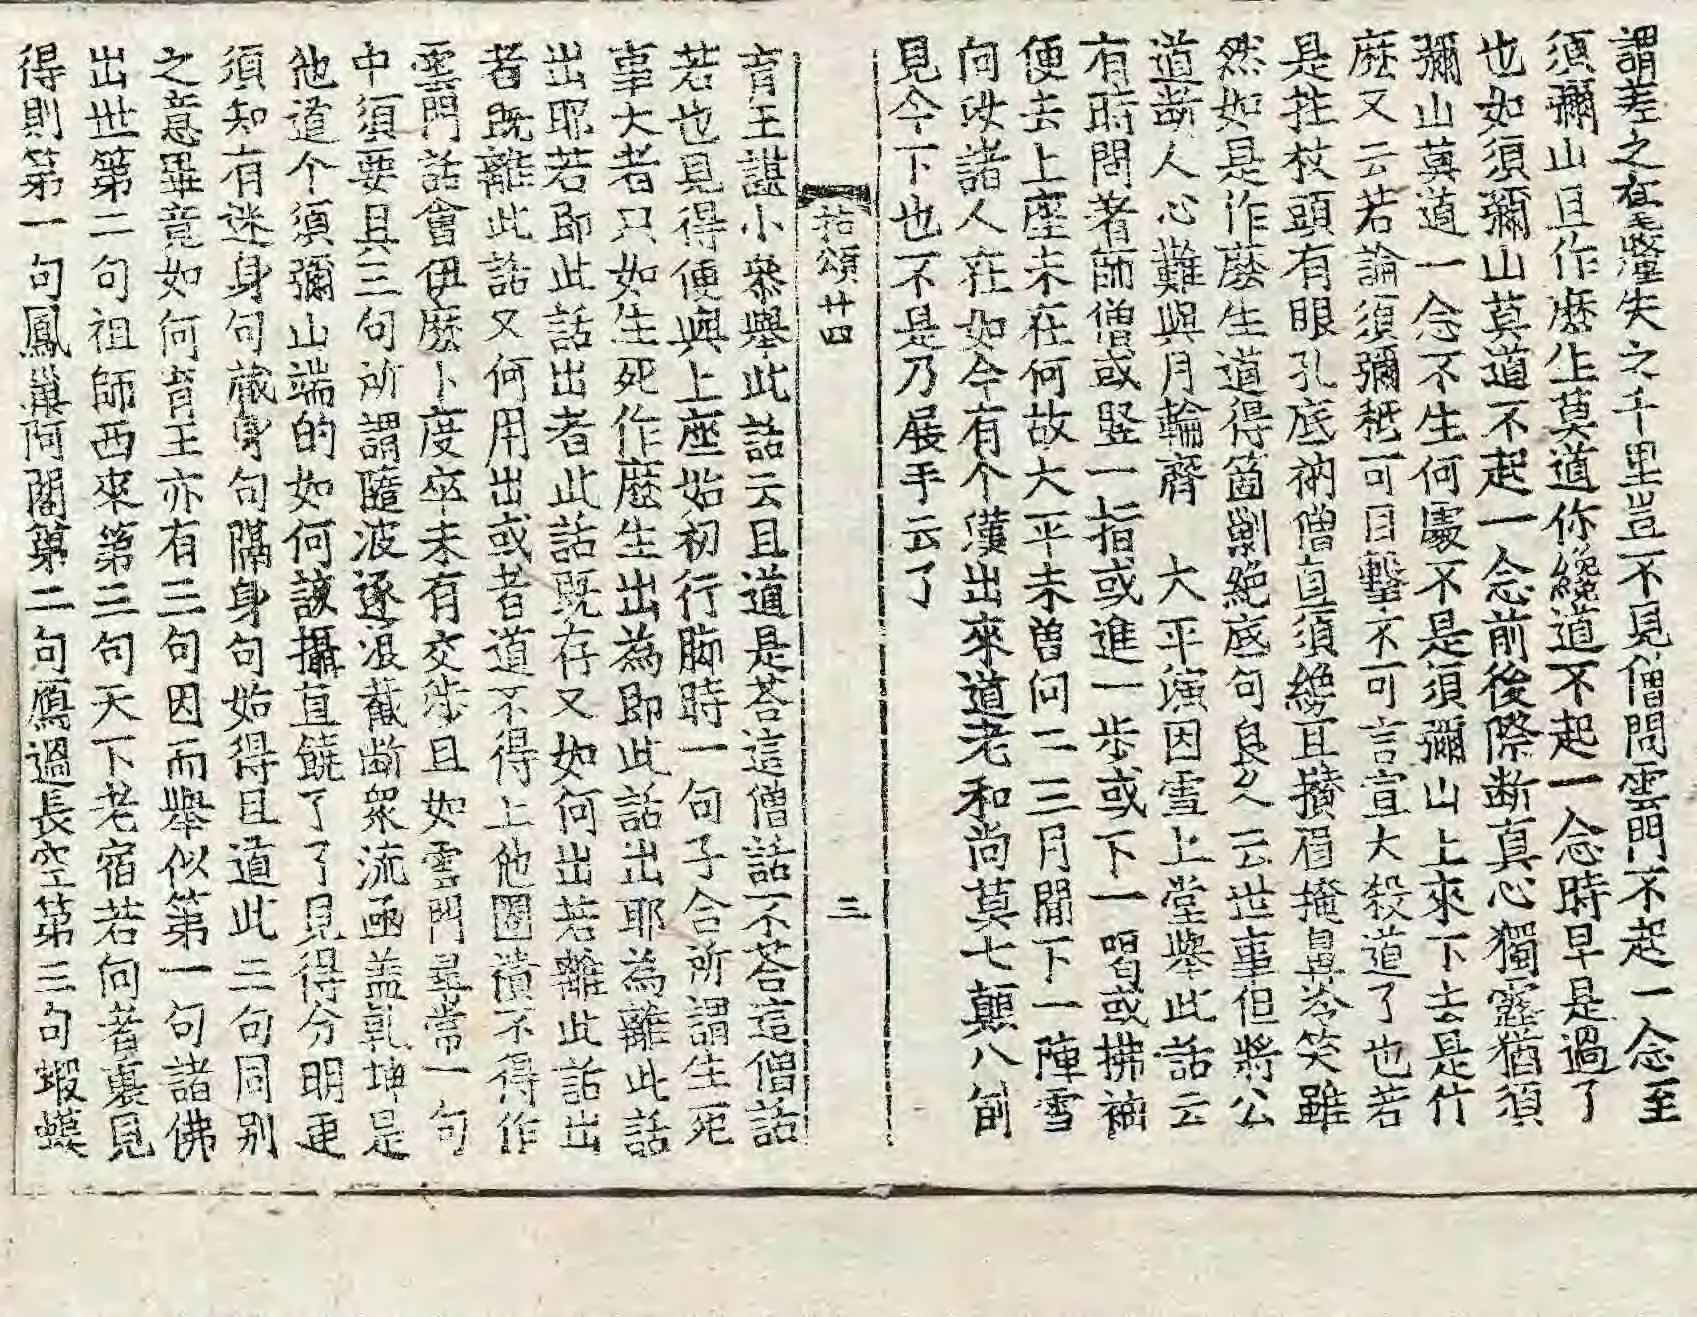 謂差之在毫釐失之千里豈不見僧問雲門不起一念至
須彌山且作麽生莫道你纔道不起一念時早是過了
也如須彌山莫道不起一念前後際断真心獨露猶須
彌山莫道一念不生何處不是須彌山上來下去是什
麽又云若論須彌秪可目擊不可言宣大殺道了也若
是拄杖頭有眼孔底衲僧直須䇿起攢眉掩鼻冷笑雖
然如是作麽生道得箇勦絶底句良久云世事但將公
道断人心難與月輪齊　大平演因雪上堂擧此話云
有時問著師僧或竖一指或進一步或下一喝或拂袖
便去上座未在何故大平未曾問二三月閒下一陣雪
向汝諸人在如今有个漢出來道老和尚莫七顚八倒
見今下也不是乃展手云了
拈頌廿四
三
育王諶小叅擧此話云且道是荅這僧話不荅這僧話
若也見得便與上座始初行脚時一句子合所謂生死
事大者只如生死作麽生出為即此話出耶為離此話
出耶若即此話出者此話既存又如何出若離此話出
者既離此話又何用出或者道不得上他圈䙡不得作
雲門話會伊麽卜度卒未有交涉且如雲門尋常一句
中須要具三句所謂隨波逐浪截断衆流凾盖乾坤是
他道个須彌山端的如何該攝直饒了了見得分明更
須知有迷身句藏身句隔身句始得且道此三句同别
之意畢竟如何育王亦有三句因而擧似第一句諸佛
出世第二句祖師西來第三句天下老宿若向者裏見
得則第一句鳳巢阿閣第二句鴈過長空第三句蝦蟆